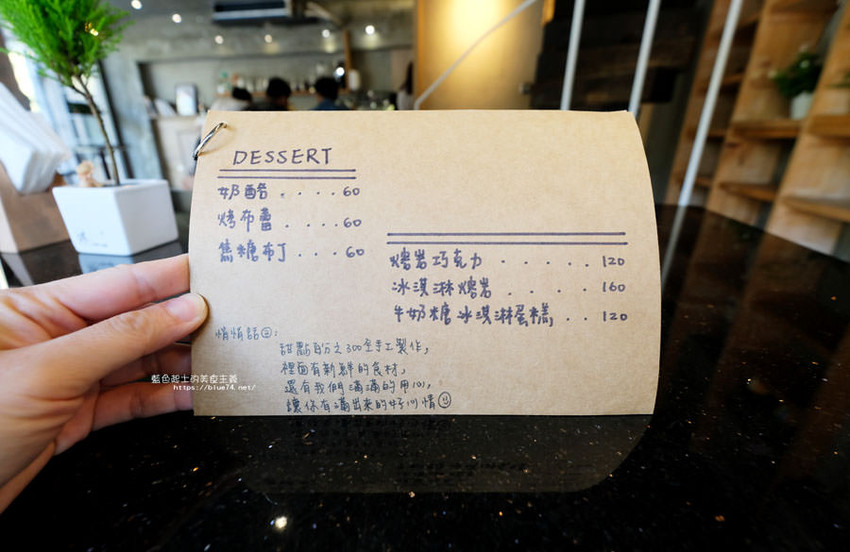 DESSERT
奶酪 . . . . 60
烤布蕾 . . . . 60
焦糖布丁 . . . 60
熔岩巧克力 . . . . . 120
冰淇淋熔岩 . . . . 160
牛奶糖冰淇淋蛋糕 . . 120
悄悄話②:
甜點百分之300全手工製作,
裡面有新鮮的食材,
還有我們滿滿的用心,
讓你有滿出來的好心情☺
藍色起士的美食主義
https://blue74.net/